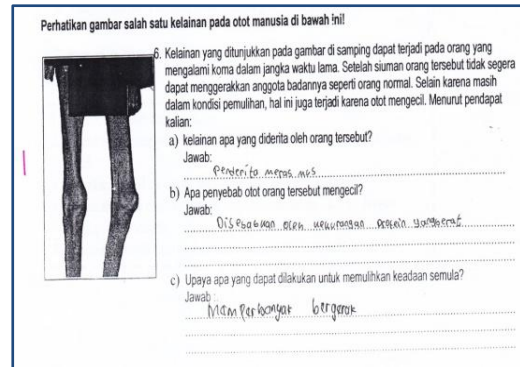 Perhatikan gambar salah satu kelainan pada otot manusia di bawah ini!
6. Kelainan yang ditunjukkan pada gambar di samping dapat terjadi pada orang yang
mengalami koma dalam jangka waktu lama. Setelah siuman orang tersebut tidak segera
dapat menggerakkan anggota badannya seperti orang normal. Selain karena masih
dalam kondisi pemulihan, hal ini juga terjadi karena otot mengecil. Menurut pendapat
kalian:
a) kelainan apa yang diderita oleh orang tersebut?
Jawab:
Penderita
b) Apa penyebab otot orang tersebut mengecil?
Jawab:
Disebabkan oleh kekurangan protein yang berat
c) Upaya apa yang dapat dilakukan untuk memulihkan keadaan semula?
Jawab :
Mamperbanyak bergerak